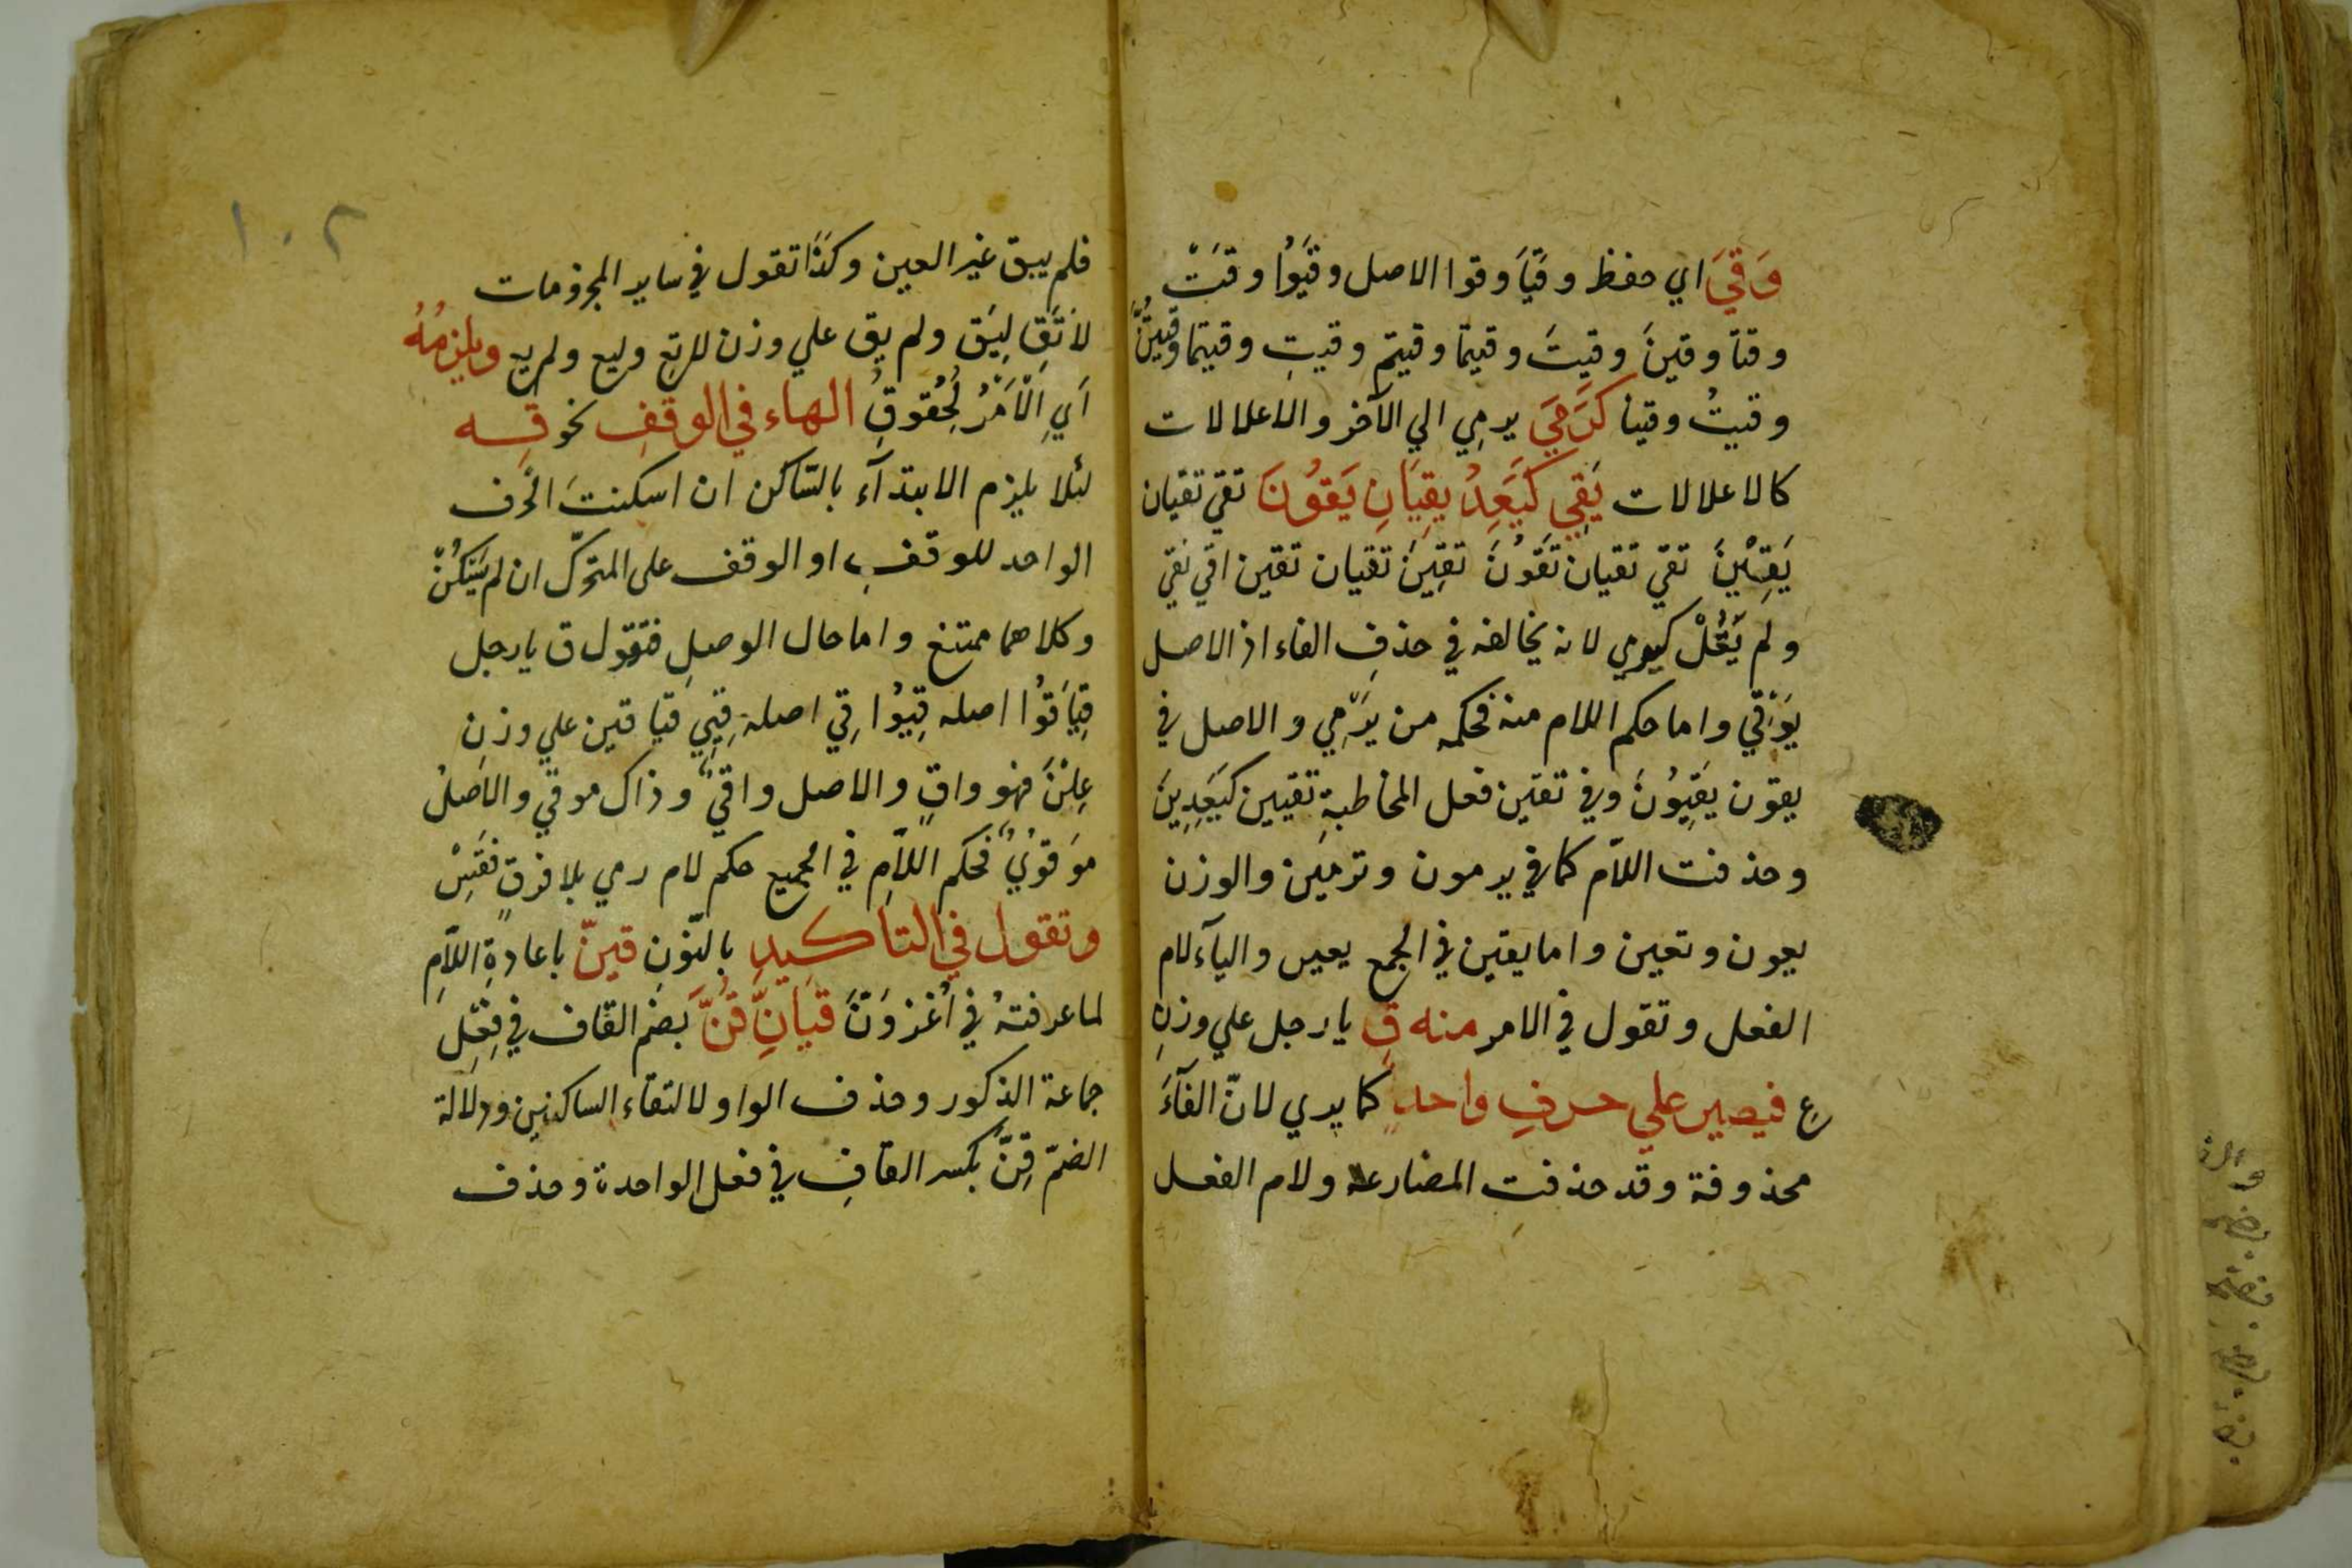 وَقَيَ اي حفظ وقَيَا وقوا الاصل وقَيُوا وقَتْ
وقتا وقينَ وقيتَ وقيتما وقيتم وقيتِ وقيتما وقيتُنَّ
وقيتُ وقينا كَرَمَيَ يرمِي الي الآخر والاعلالات
كالاعلالات يَقِي كَيَعِدُ يقِيَانِ يَقُونَ تقي تقيان
يَقِيْنَ تقي تقيان تَقُونَ تقِينَ تقيان تقين اقي نقي
ولم يَقُلْ كيرمي لانه يخالفه في حذفِ الفاء اذ الاصل
يَوْقِي واما حكم اللام منه فحكمه من يَرْمِي والاصل في
يقون يَقِيُونَ وفي تقين فعل المخاطبةِ تقيين كيَعِدِينَ
وحذفت اللاّم كما في يرمون وترمين والوزن
يعون وتعين واما يقين في الجمع يعين واليآء لام
الفعل وتقول في الامر منه قِ يا رجل علي وزنِ
عِ فيصير علي حرفٍ واحدٍ كما يري لانّ الفآءَ
محذوفة وقد حذفت المضارعه ولام الفعل
١٠٢
فلم يبق غير العين وكَذَا تقول في ساير المجزومات
لاَتَقِ لِيَق ولم يق علي وزن لاتع وليع ولم يع ويلزمُهُ
اَيِ الْاَمْرُ لُحُقوقِ الهاء في الوقفِ نحو قِه
لئلا يلزم الابتدآء بالسّاكن ان اسكنتَ الحرف
الواحد للوقفِ او الوقف على المتحرّك ان لم تسكنْ
وكلاهما ممتنع واما حال الوصلِ فتقول ق يا رجل
قِيَا قُوا اصله قِيُوا قِي اصله قِيِي قيا قين علي وزنِ
عِلْنَ فهو واقٍ والاصل واقيٌ وذاك موقي والاصلُ
موقويٌ فحكم اللاّمِ في الجميع حكم لام رمي بلا فرقٍ فقِسْ
وتقول في التاكيدِ بالنّونِ قينّ باعادةِ اللاّمِ
لما عرفتهُ في اُغزوَنَّ قيَانِّ قُنَّ بضم القاف في فِعْلِ
جماعة الذكور وحذف الواو لالتقاء الساكنين ودلالة
الضمّ قِنَّ بكسر القافِ في فعل الواحدة وحذف